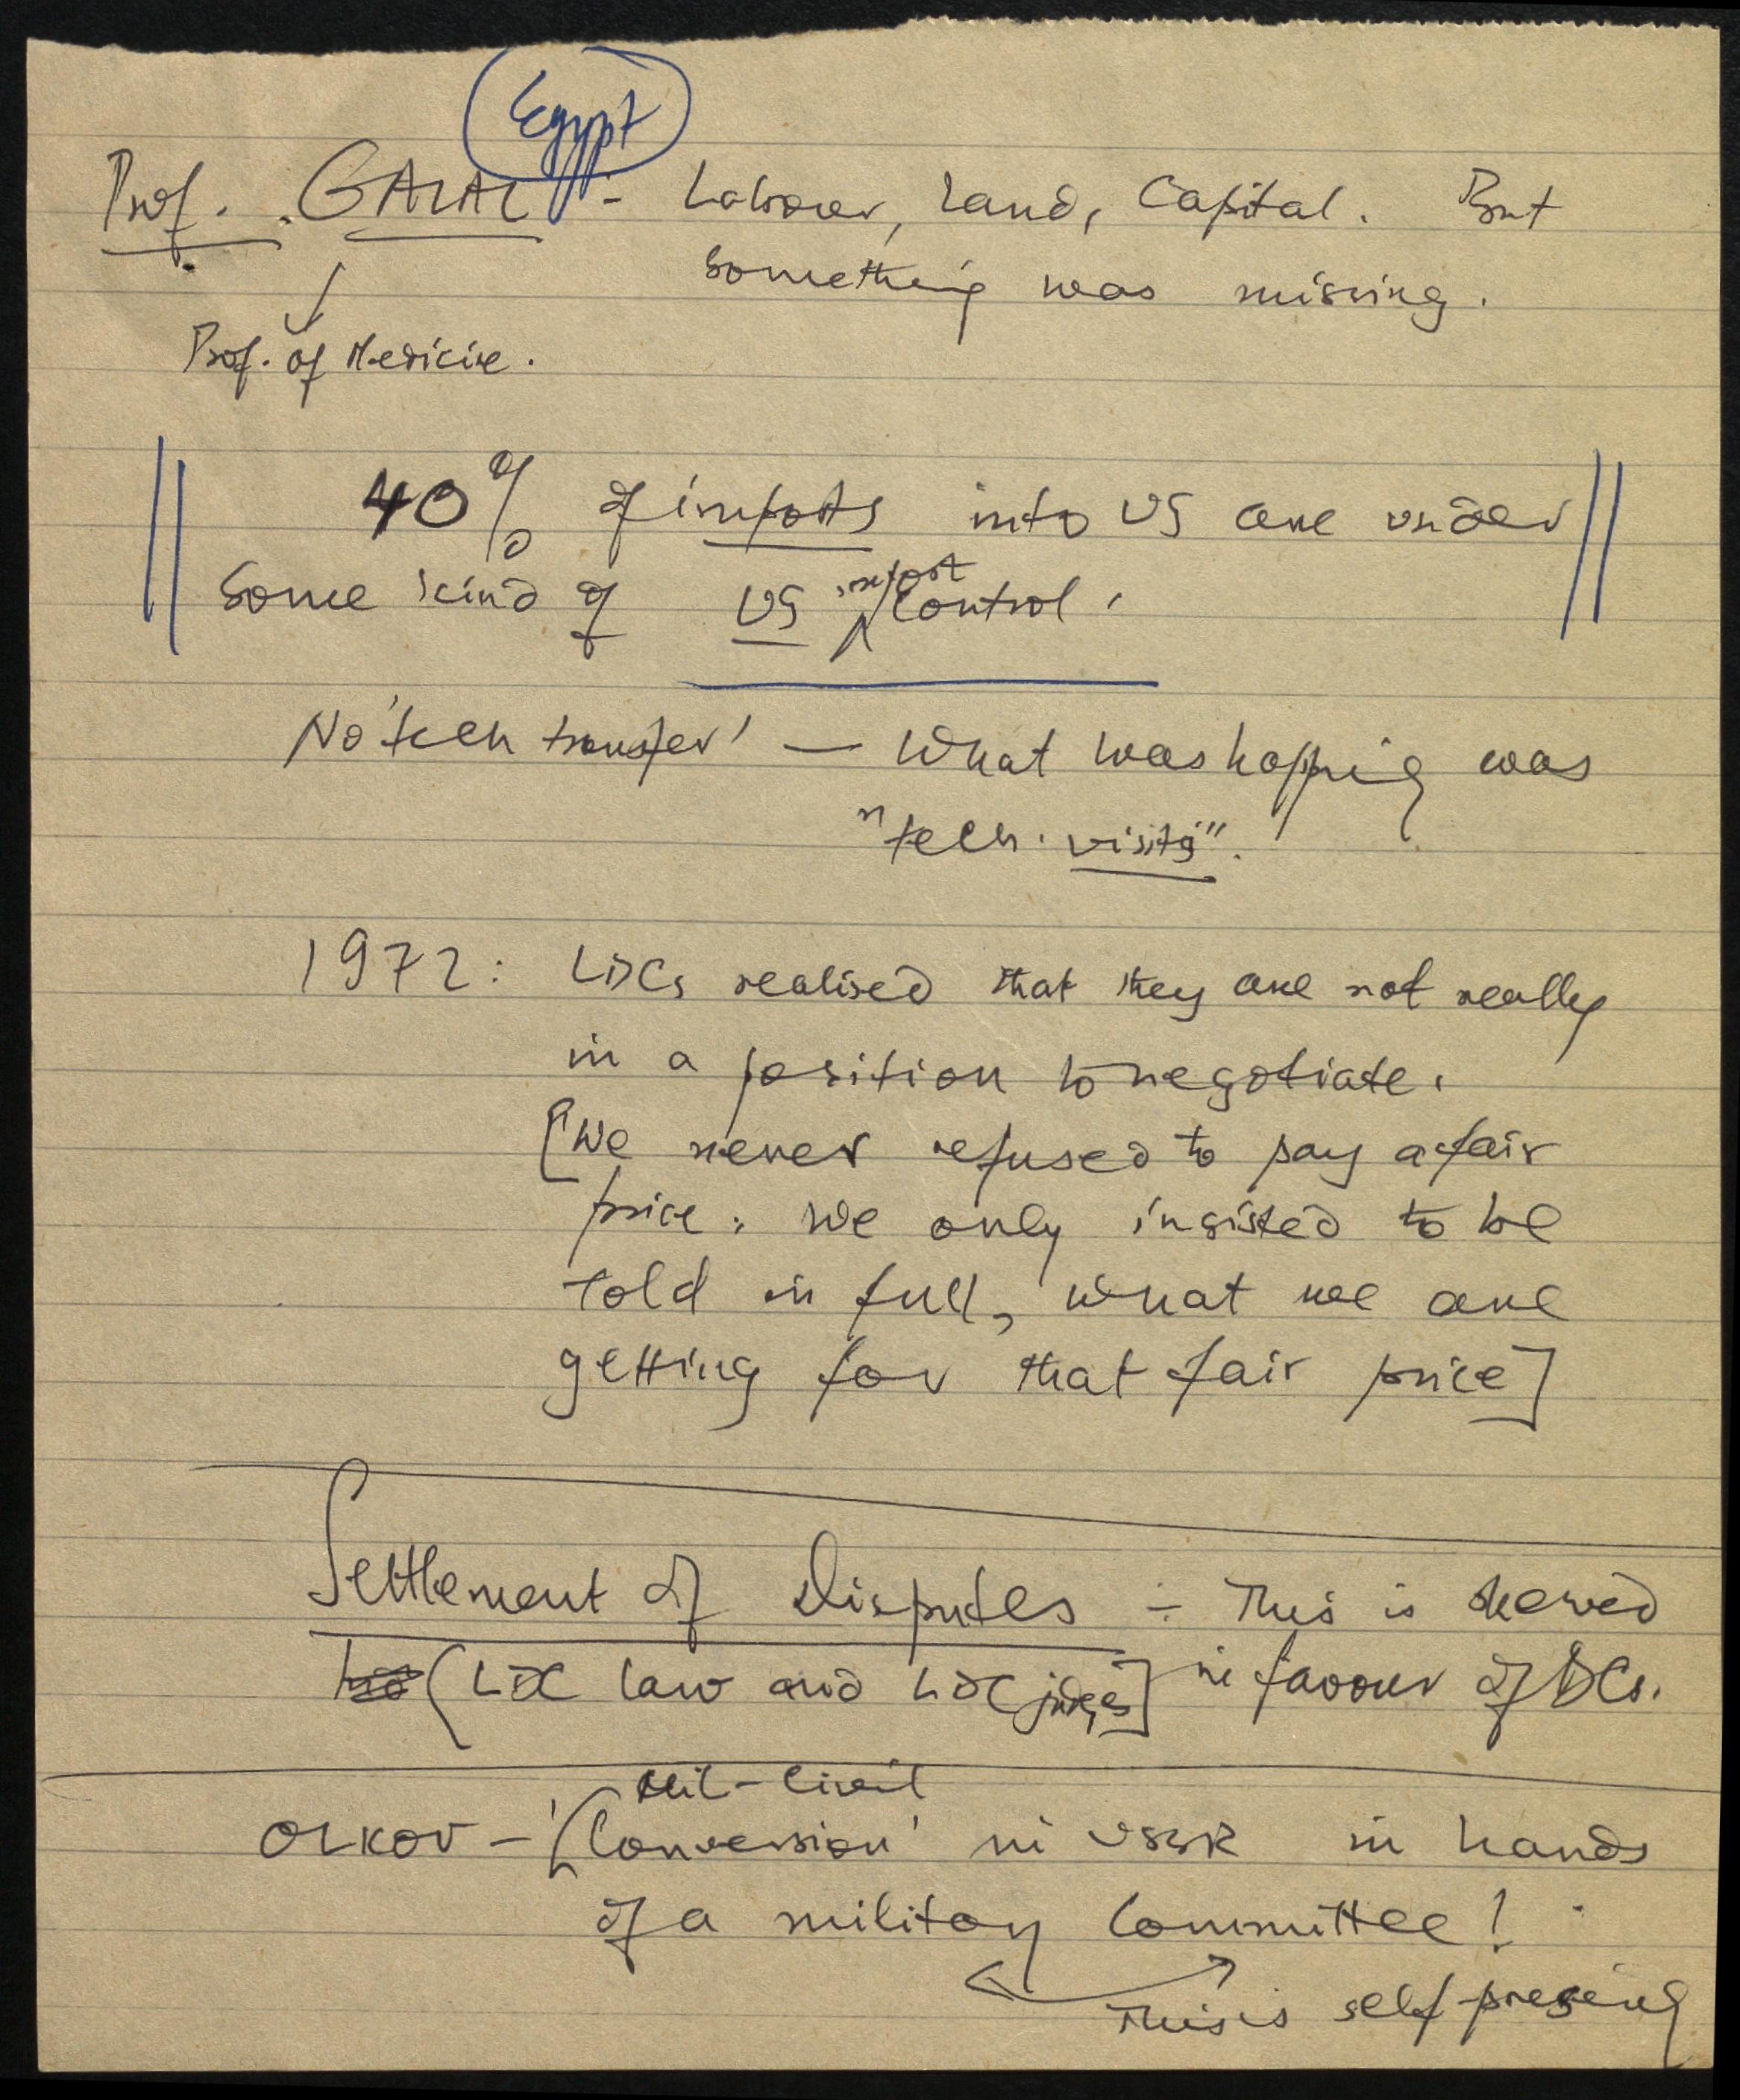 Egypt
Prof. GALAL :- Labour, Land, Capital. But
something was missing.
Prof. of Medicine.
40% of imports into US are under
some kind of US import control.
No 'tech transfer' — What was happnig was
"tech. visits".
1972: LDCs realised that they are not really
in a position to negotiate.
[We never refused to pay a fair
price. We only insisted to be
told in full, what we are
getting for that fair price]
Settlement of Disputes :- This is skewed
(LDC law and LDC judges] in favour of DCs.
mil-civil
OLKOV - '[Conversion' in USSR in hands
of a military Committee!
This is self-preserving